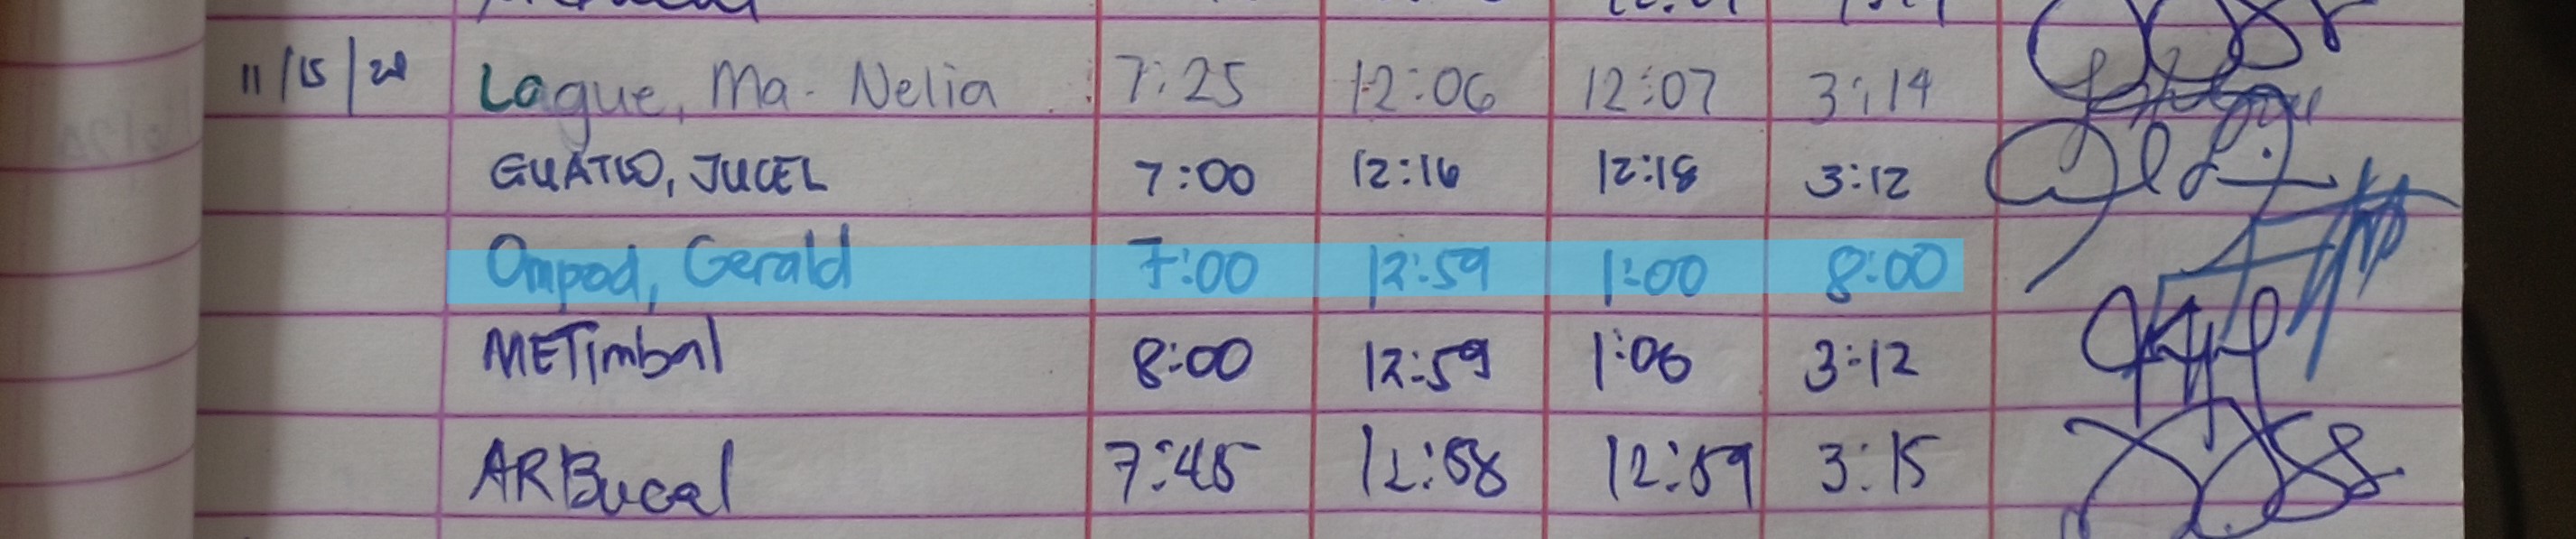 11/15/28 Lague, Ma. Nelia 7:25 12:06 12:07 3:14
GUATLO, JUCEL 7:00 12:16 12:18 3:12
Ompod, Gerald 7:00 12:59 1:00 8:00
METimbal 8:00 12:59 1:06 3:12
ARBucal 7:45 12:58 12:59 3:15